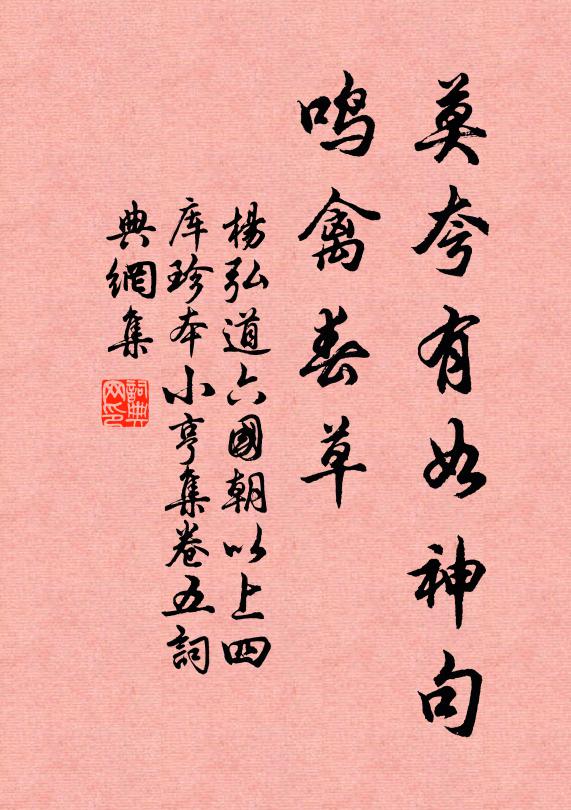 莫夸有如神句
鸣禽春草
楊弘道六國朝以上四
库珍本小亨集卷五詞
典網集
詞典網印